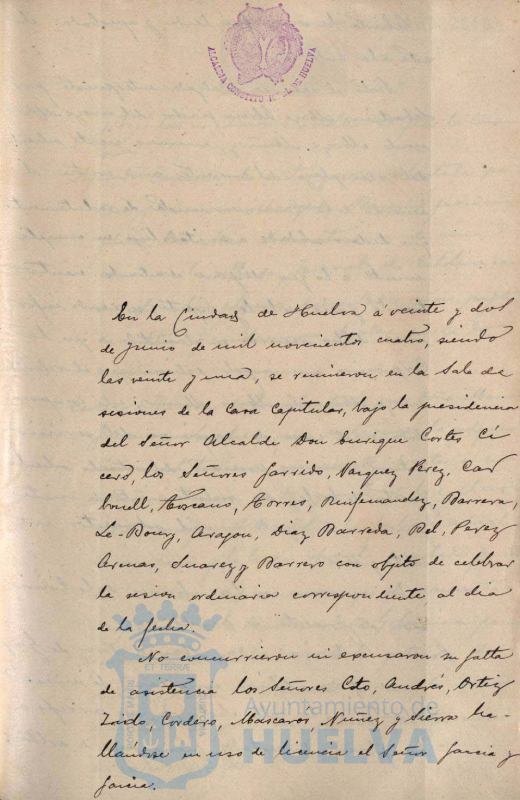 ALCALDIA CONSTITUCIONAL DE HUELVA
En la Ciudad de Huelva á veinte y dos
de Junio de mil novecientos cuatro, siendo
las veinte y una, se reunieron en la Sala de
sesiones de la Casa Capitular, bajo la presidencia
del Señor Alcalde Don Enrique Cortes Cí
cero, los Señores Garrido, Vazquez Perez, Car
bonell, Toscano, Torres, Ruifernandez, Barrera,
Le-Bourg, Aragon, Diaz Barreda, Bel, Perez
Arenas, Suarez y Barrero con objeto de celebrar
la sesion ordinaria correspondiente al dia
de la fecha.
No concurrieron ni excusaron su falta
de asistencia los Señores Coto, Andrés, Ortiz
Zaido, Cordero, Mascarós, Nuñez y Sierra ha-
llándose en uso de licencia el Señor Garcia y
Garcia.
Ayuntamiento de
HUELVA